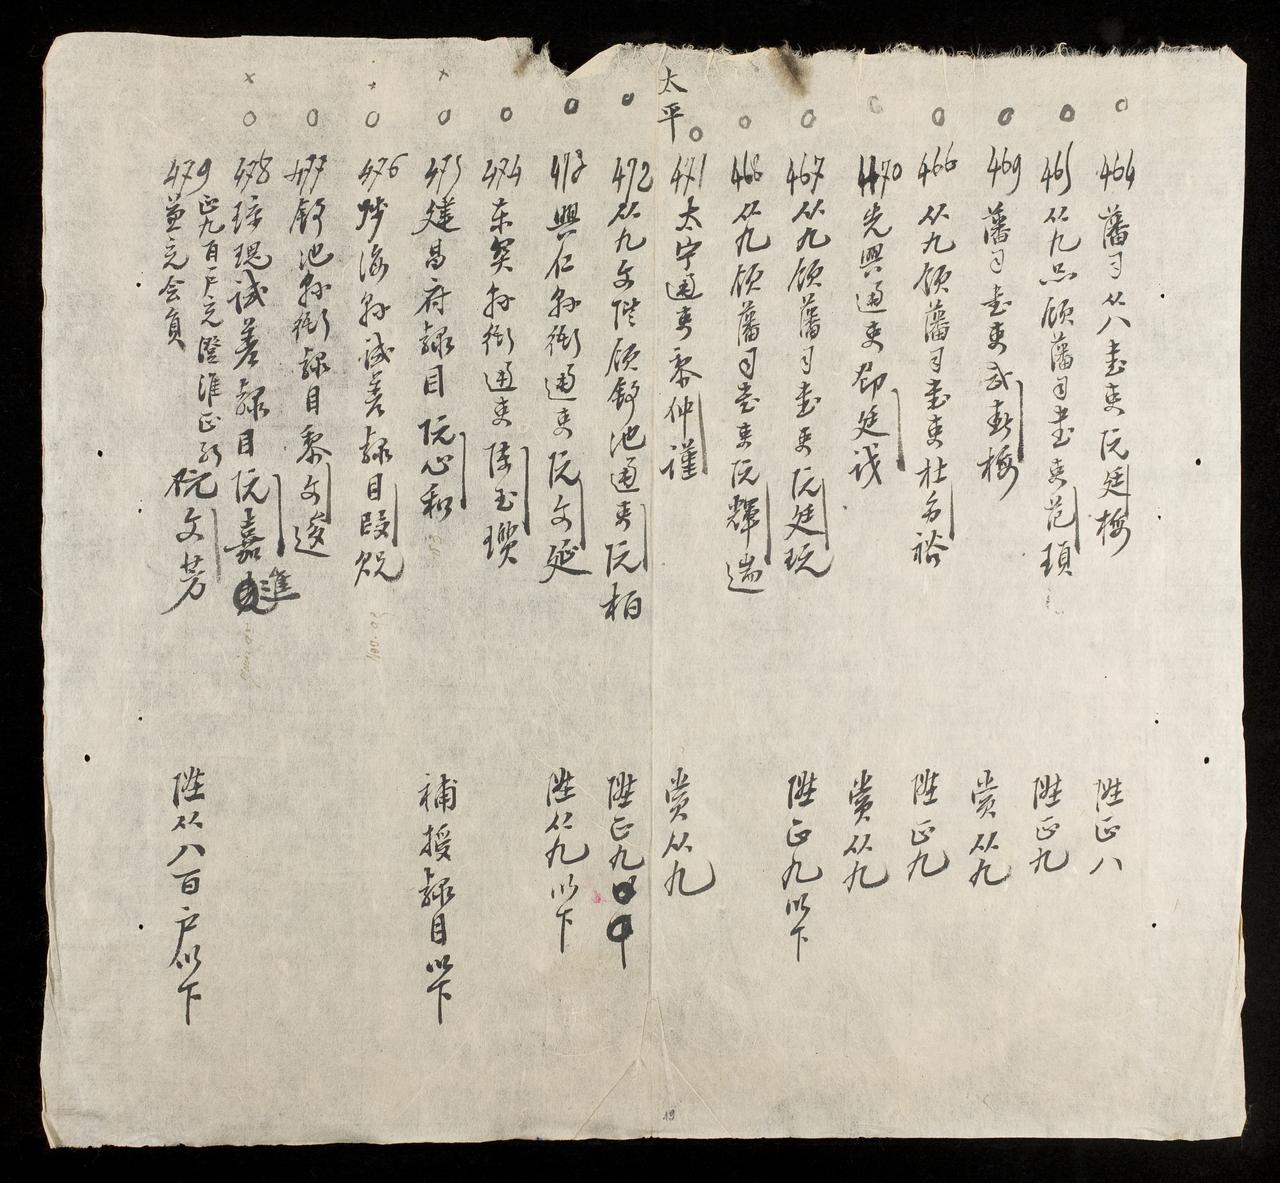 464 藩司从八書吏阮廷梅 陞正八
465 从九品領藩司書吏范瑱 陞正九
469 藩司書吏武春梅 賞从九
466 从九領藩司書吏杜名裕 陞正九
470 先興通吏鄧廷識 賞从九
467 从九領藩司書吏阮廷玩 陞正九以下
468 从九領藩司書吏阮輝遄
太平
471 太宁通吏黎仲謹 賞从九
472 从九文階領舒池通吏阮栢 陞正九
473 興仁縣衙通吏阮文延 陞从九以下
474 东関縣衙通吏陳玉瓚
475 建昌府隸目阮心和 補授隸目以下
476 縣誠善隸目段
477 舒池縣衙隸目黎文逡
478 琼瑰誠善隸目阮嘉進
479 正九百户充 阮文芳 陞从八百户以下
並充会員
19